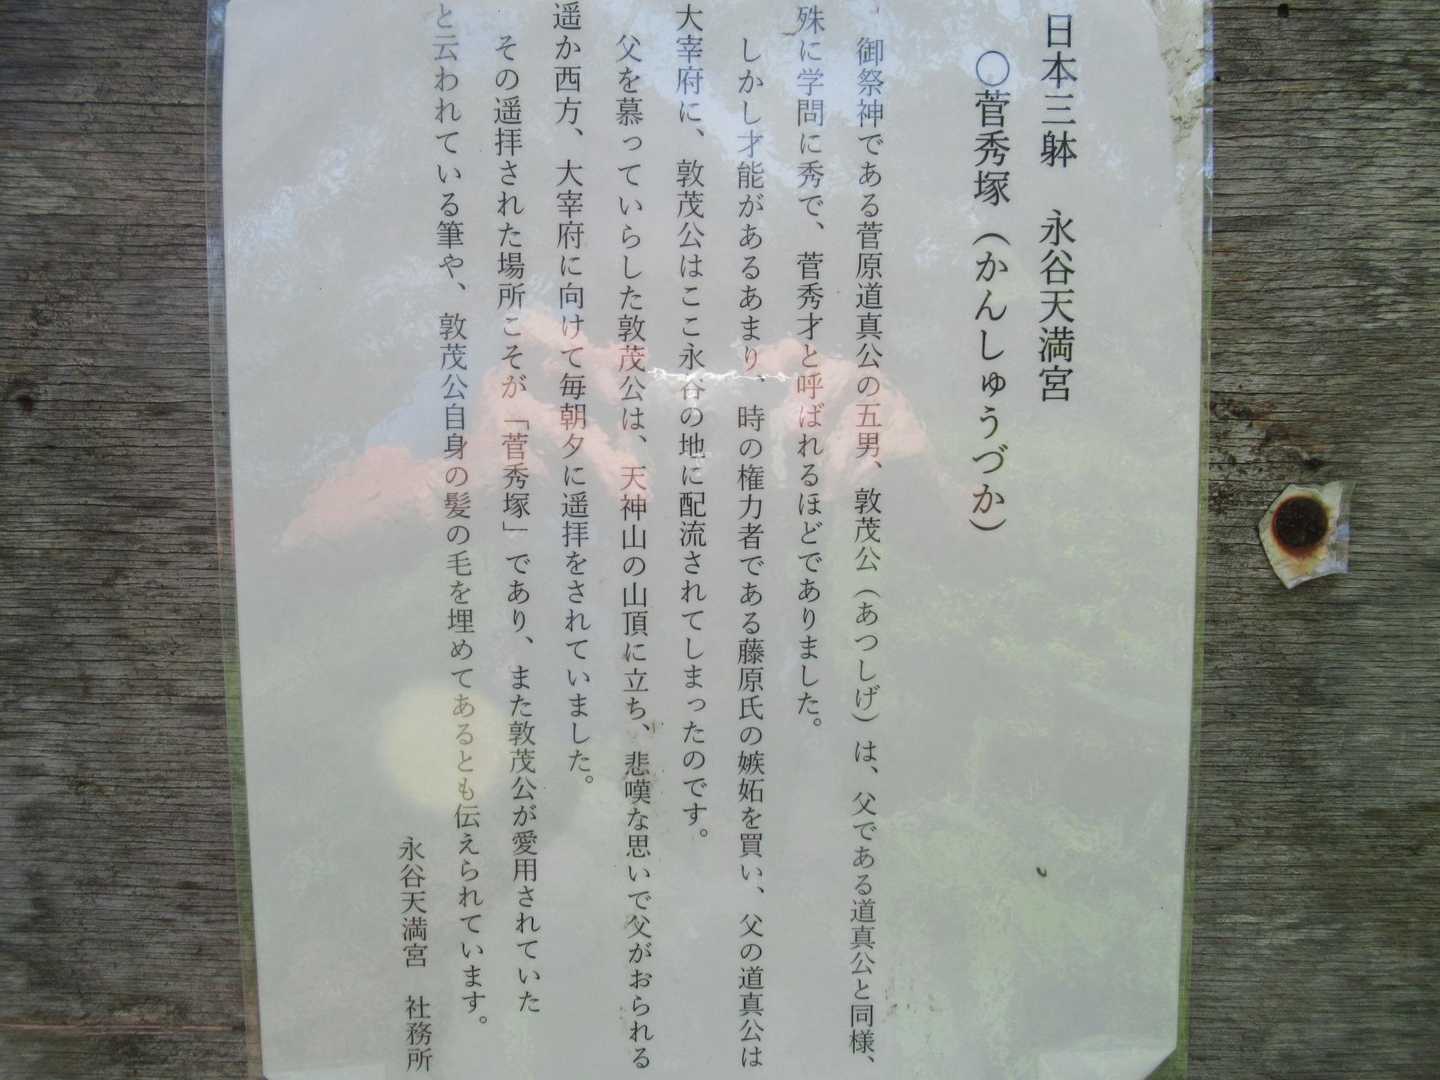 日本三躰　永谷天満宮
〇菅秀塚（かんしゅうづか）
御祭神である菅原道真公の五男、敦茂公（あつしげ）は、父である道真公と同様、
殊に学問に秀で、菅秀才と呼ばれるほどでありました。
しかし才能があるあまり、時の権力者である藤原氏の嫉妬を買い、父の道真公は
大宰府に、敦茂公はここ永谷の地に配流されてしまったのです。
父を慕っていらした敦茂公は、天神山の山頂に立ち、悲嘆な思いで父がおられる
遥か西方、大宰府に向けて毎朝夕に遥拝をされていました。
その遥拝された場所こそが「菅秀塚」であり、また敦茂公が愛用されていた
と云われている筆や、敦茂公自身の髪の毛を埋めてあるとも伝えられています。
永谷天満宮　社務所